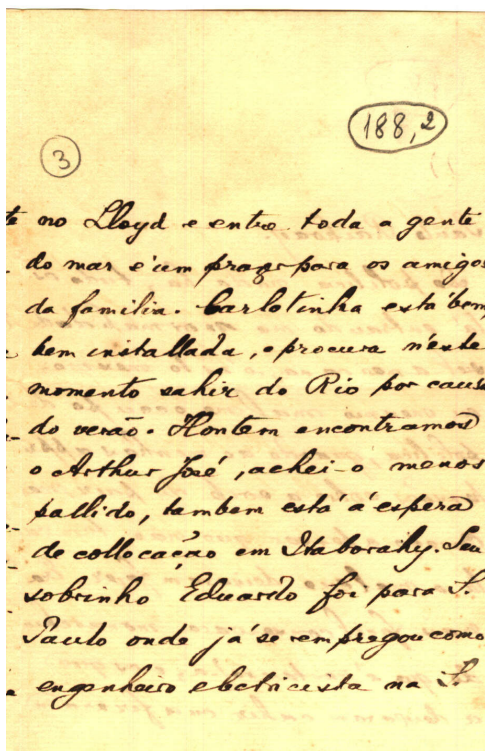 188,2
3
te no Lloyd e entre toda a gente
do mar é um prazer para os amigos
da familia. Carlotinha está bem,
bem installada, e procura n'este
momento sahir do Rio por causa
do verão. Hontem encontramos
o Arthur José, achei-o menos
pallido, tambem está á espera
de collocação em Itaborahy. Seu
sobrinho Eduardo foi para S.
Paulo onde já se empregou como
engenheiro electricista na S.